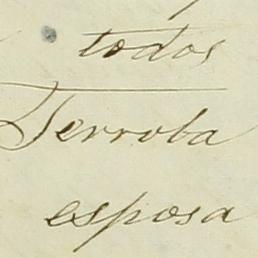 todos
Terroba
esposa